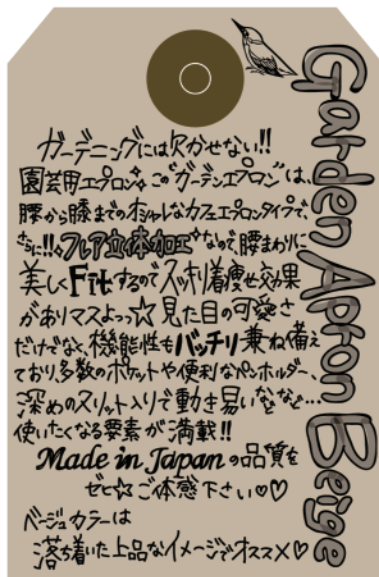 ガーデニングには欠かせない!!
園芸用エプロン✧この"ガーデンエプロン"は、
腰から膝までのオシャレなカフェエプロンタイプで、
さらに!!✧フレア立体加工✧なので、腰まわりに
美しくFitするのでスッキリ着痩せ効果
がありマスよっ☆見た目の可愛さ
だけでなく、機能性もバッチリ兼ね備え
ており多数のポケットや便利なペンホルダー、
深めのスリット入りで動き易いなどなど…
使いたくなる要素が満載!!
Made in Japanの品質を
ぜひ☆ご体感下さい♡♡
ベージュカラーは
落ち着いた上品なイメージでオススメ♡
Garden Apron Beige